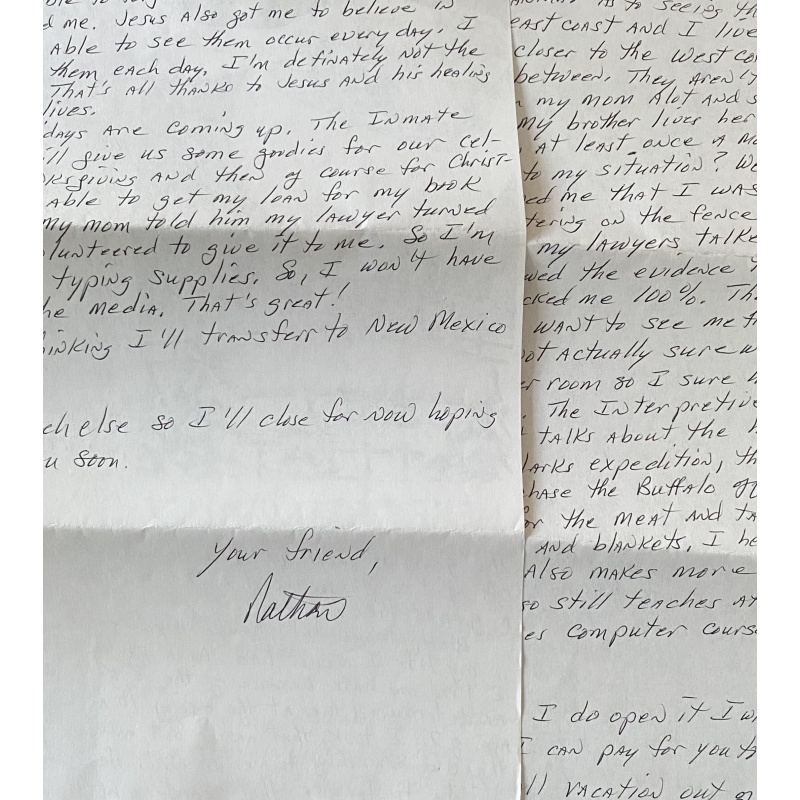 d me. Jesus Also got me to believe in
Able to see them occur every day. I
them each day. I'm definately not the
That's all thanks to Jesus And his healing
lives.
days Are coming up. The Inmate
'll give us some goodies for our cel-
ksgiving And then of course for Christ-
Able to get my loan for my book
my mom told him my lawyer turned
lunteered to give it to me. So I'm
typing supplies. So, I won't have
he media. That's great!
inking I'll transferr to New Mexico
ch else so I'll close for now hoping
u soon.
Your friend,
Nathan
As to seeing th
east coast And I live
closer to the west co
between. They Aren't
my mom Alot And s
my brother lives her
At least once a mo
to my situation? We
ed me that I was
tering on the fence
my lawyers talke
wed the evidence
cked me 100%. Th
want to see me f
ot Actually sure w
er room so I sure h
. The Interpretive
talks About the
larks expedition, th
hase the Buffalo
or the meat And ta
And blankets. I he
Also makes more
so still teaches At
es computer cours
I do open it I w
I can pay for you t
ll vacation out